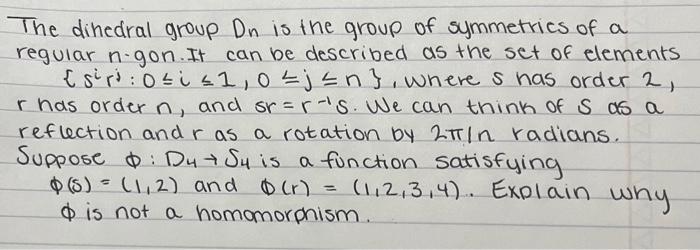 The dihedral group Dn is the group of symmetries of a
regular n-gon. It can be described as the set of elements
{sⁱrʲ : 0≤i≤1, 0≤j≤n}, where s has order 2,
r has order n, and sr = r⁻¹s. We can think of S as a
reflection and r as a rotation by 2π/n radians.
Suppose ϕ : D4 → S4 is a function satisfying
ϕ(s) = (1,2) and ϕ(r) = (1,2,3,4). Explain why
ϕ is not a homomorphism.